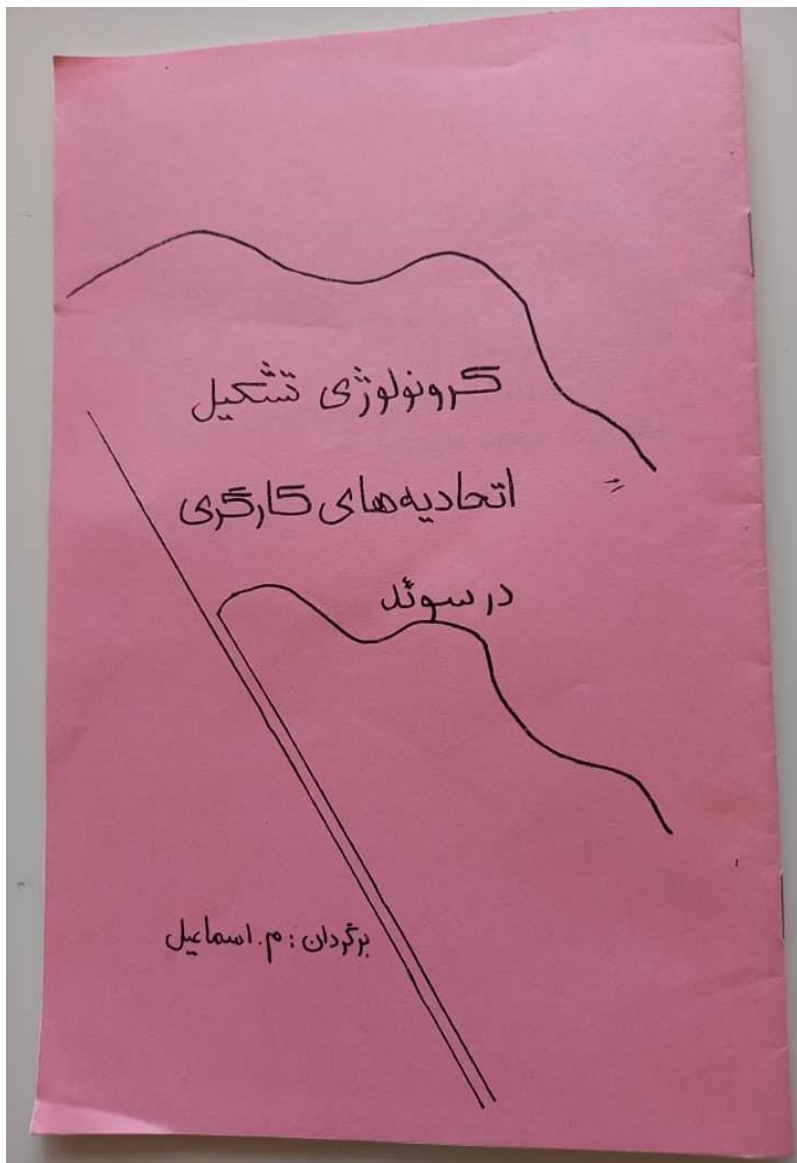 کرونولوژی تشکیل
اتحادیه‌های کارگری
در سوئد
برگردان : م. اسماعیل